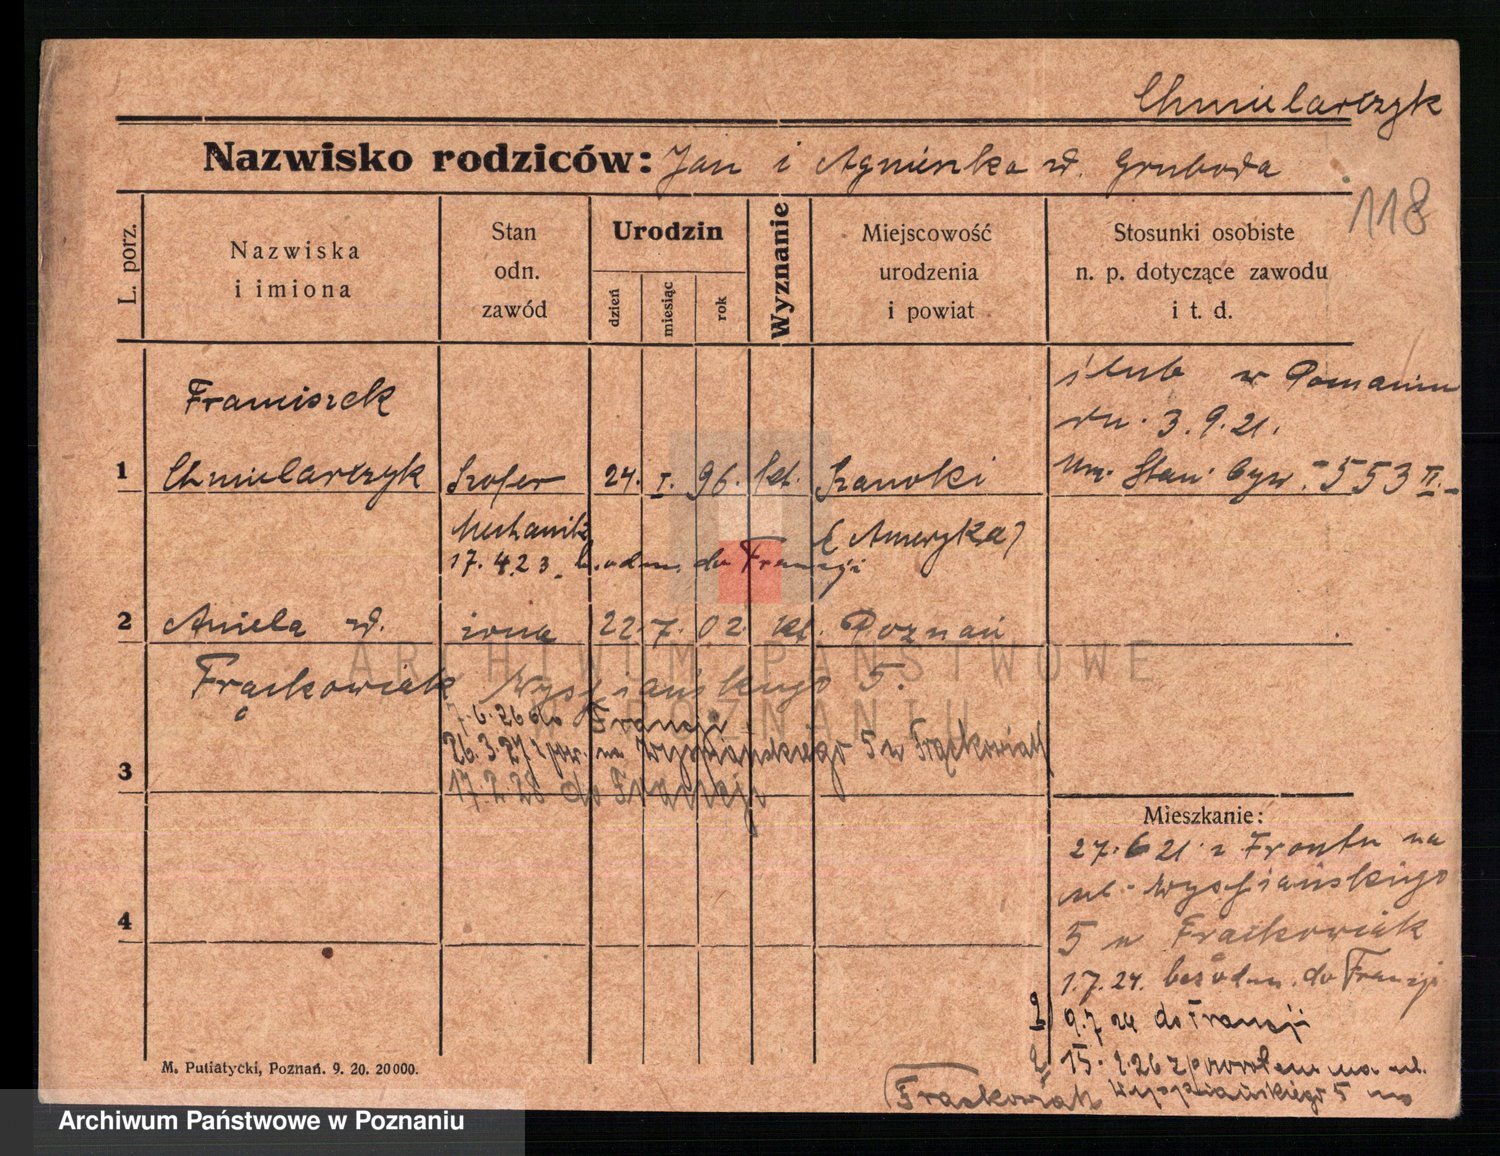 Chmielarczyk
Nazwisko rodziców: Jan i Agnieszka zd. Gruboda
118
L. porz.
Nazwiska
i imiona
Stan
odn.
zawód
Urodzin
dzień
miesiąc
rok
Wyznanie
Miejscowość
urodzenia
i powiat
Stosunki osobiste
n. p. dotyczące zawodu
i t. d.
ślub w Poznaniu
dn. 3.9.21.
Franciszek
1 Chmielarczyk Szofer 24. I. 96. kat. Szanoki
Urz. Stan. Cyw. 553 II.
Mechanik (Ameryka)
17.4.23. b. odm. do Francji
2 Aniela zd. żona 22.7.02 kat. Poznań
Frąckowiak Wyspiańskiego 5.
7.6.26 do Francji
26.3.27 z pow. na Wyspiańskiego 5 u Frąckowiak
3
17.2.28 do Francji
Mieszkanie:
27.6 21 z Frontu na
ul. Wyspiańskiego
4
5 u Frąckowiak
1.7.24. bez odm. do Francji
2) 9.7 24 do Francji
2 15.2.26 z powrotem na ul.
Frąckowiak Wyspiańskiego 5
M. Putiatycki, Poznań. 9. 20. 20000.
ARCHIWUM PAŃSTWOWE
W POZNANIU
Archiwum Państwowe w Poznaniu